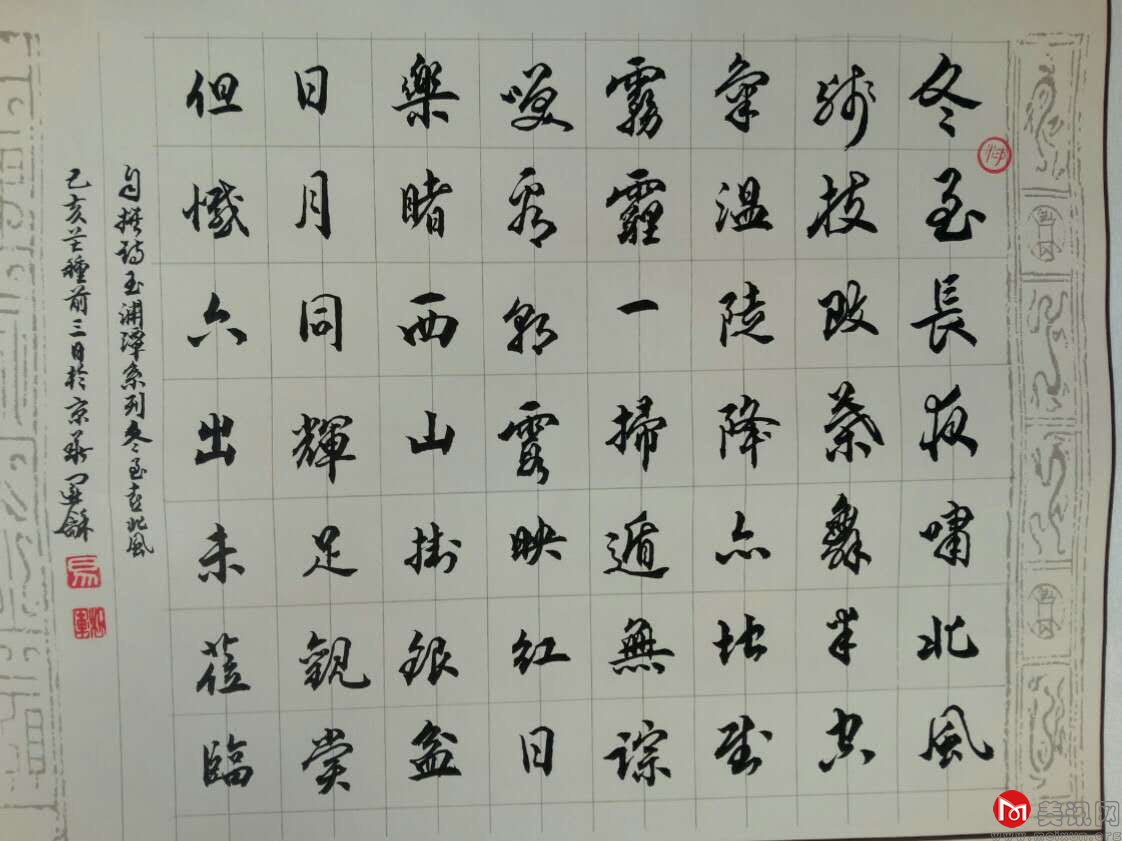 冬至長夜嘯北風
殘枝敗葉舞半空
氣溫陡降亦地動
霧霾一掃遁無踪
喫看朝霞映紅日
樂睹西山掛銀盆
日月同輝足觀賞
但懺六出未蒞臨
自撰詩玉渊潭系列冬至吉北風
己亥芒種前三日於京華
美讯网